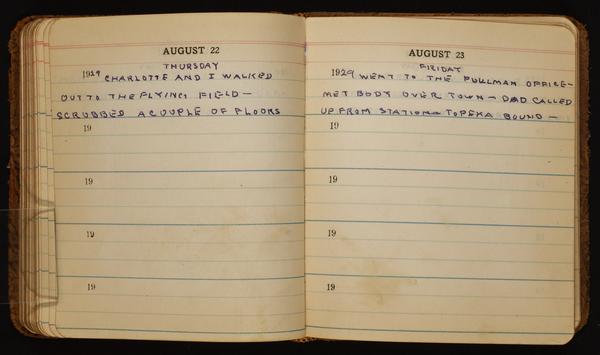 AUGUST 22
THURSDAY
1929 CHARLOTTE AND I WALKED
OUT TO THE FLYING FIELD —
SCRUBBED A COUPLE OF FLOORS
19
19
19
19
AUGUST 23
FRIDAY
1929 WENT TO THE PULLMAN OFFICE —
MET BODY OVER TOWN — DAD CALLED
UP FROM STATION — TOPEKA BOUND —
19
19
19
19